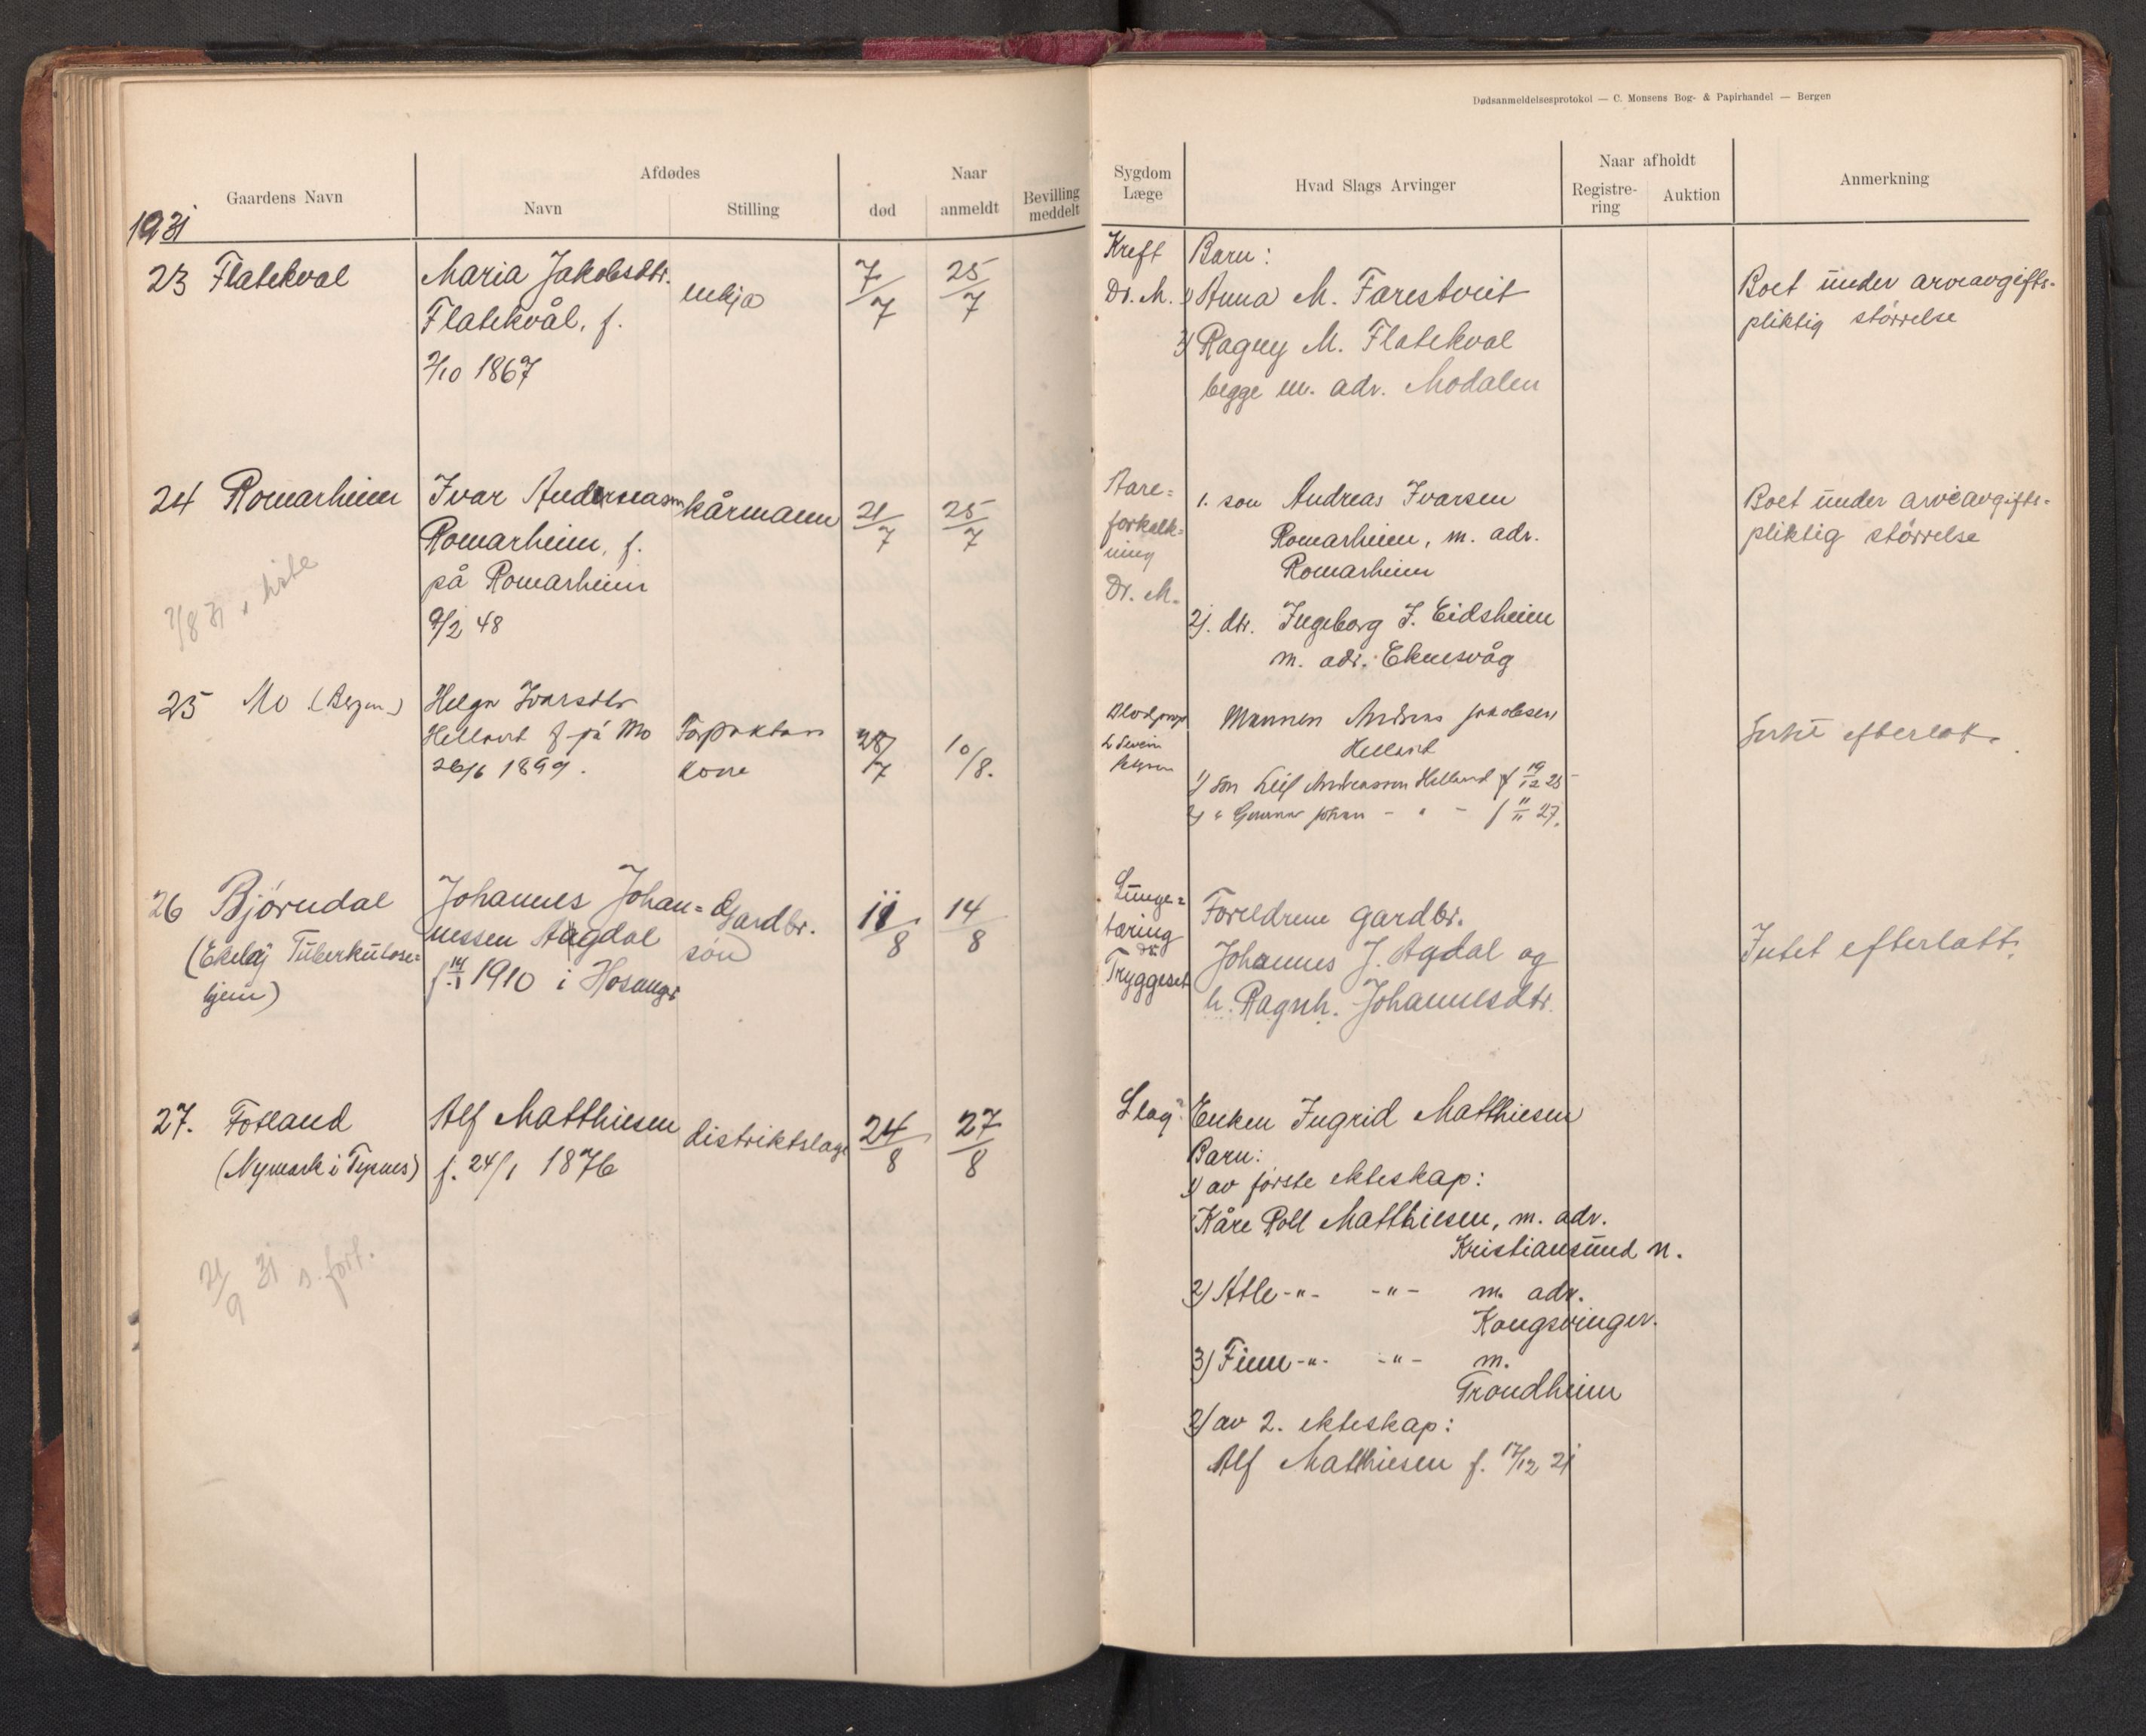 Dødsanmeldelsesprotokol — C. Monsens Bog- & Papirhandel — Bergen
Gaardens Navn
Afdødes
Navn
Stilling
Naar
død
anmeldt
Bevilling
meddelt
Sygdom
Læge
Hvad Slags Arvinger
Naar afholdt
Registre-
ring
Auktion
Anmerkning
1931
23 Flatekval
Maria Jakobsdtr.
Flatekvål, f.
2/10 1867
enkja
7/7
25/7
Kreft
Dr. M.
Barn:
1) Anna M. Farestveit
2) Ragny M. Flatekval
begge m. adr. Modalen
Boet under arveavgifts-
pliktig størrelse
24 Romarheim
7/8 31 s. liste
Ivar Andreasson
Romarheim, f.
på Romarheim
9/2 48
kårmann
21/7
25/7
Aare=
forkalk=
ning
Dr. M.
1. son Andreas Ivarsen
Romarheim, m. adr.
Romarheim
2). dtr. Ingeborg J. Eidsheim
m. adr. Eknesvåg
Boet under arveavgifts=
pliktig størrelse
25 Mo (Bergen)
Helga Ivarsdtr
Helland f på Mo
26/6 1899.
kone
28/7
10/8.
Blodprop
Mannen Andreas Jakobsen
Helland
1) Søn Leif Andreassen Helland f 19/12 25
2) " Gunnar Johan - " - f 11/11 27.
efterlat.
26 Bjørndal
(Ekeläj Tuberkulose=
hjem)
Johannes Johan=
nessen Aagdal
f 14/1 1910 i Hosanger
Gardbr.
søn
11/8
14/8
Lunge=
tæring
Dr.
Tryggeset
Foreldrene gardbr.
Johannes J. Agdal og
h. Ragnh. Johannesdtr.
Intet efterlatt.
27. Fotland
(Nymark i Tysnes)
21/9 31 s. fort.
Alf Matthiesen
f. 24/1 1876
distriktslæge
24/8
27/8
Slag
Enken Ingrid Matthiesen
Barn:
1) av første ekteskap:
Kåre Roll Matthiesen, m. adr.
Kristiansund n.
2) Atle -"- -"- m. adr.
Kongsvinger.
3) Finn -"- -"- m.
Trondheim
2) av 2. ekteskap:
Alf Matthiesen f. 17/12 21